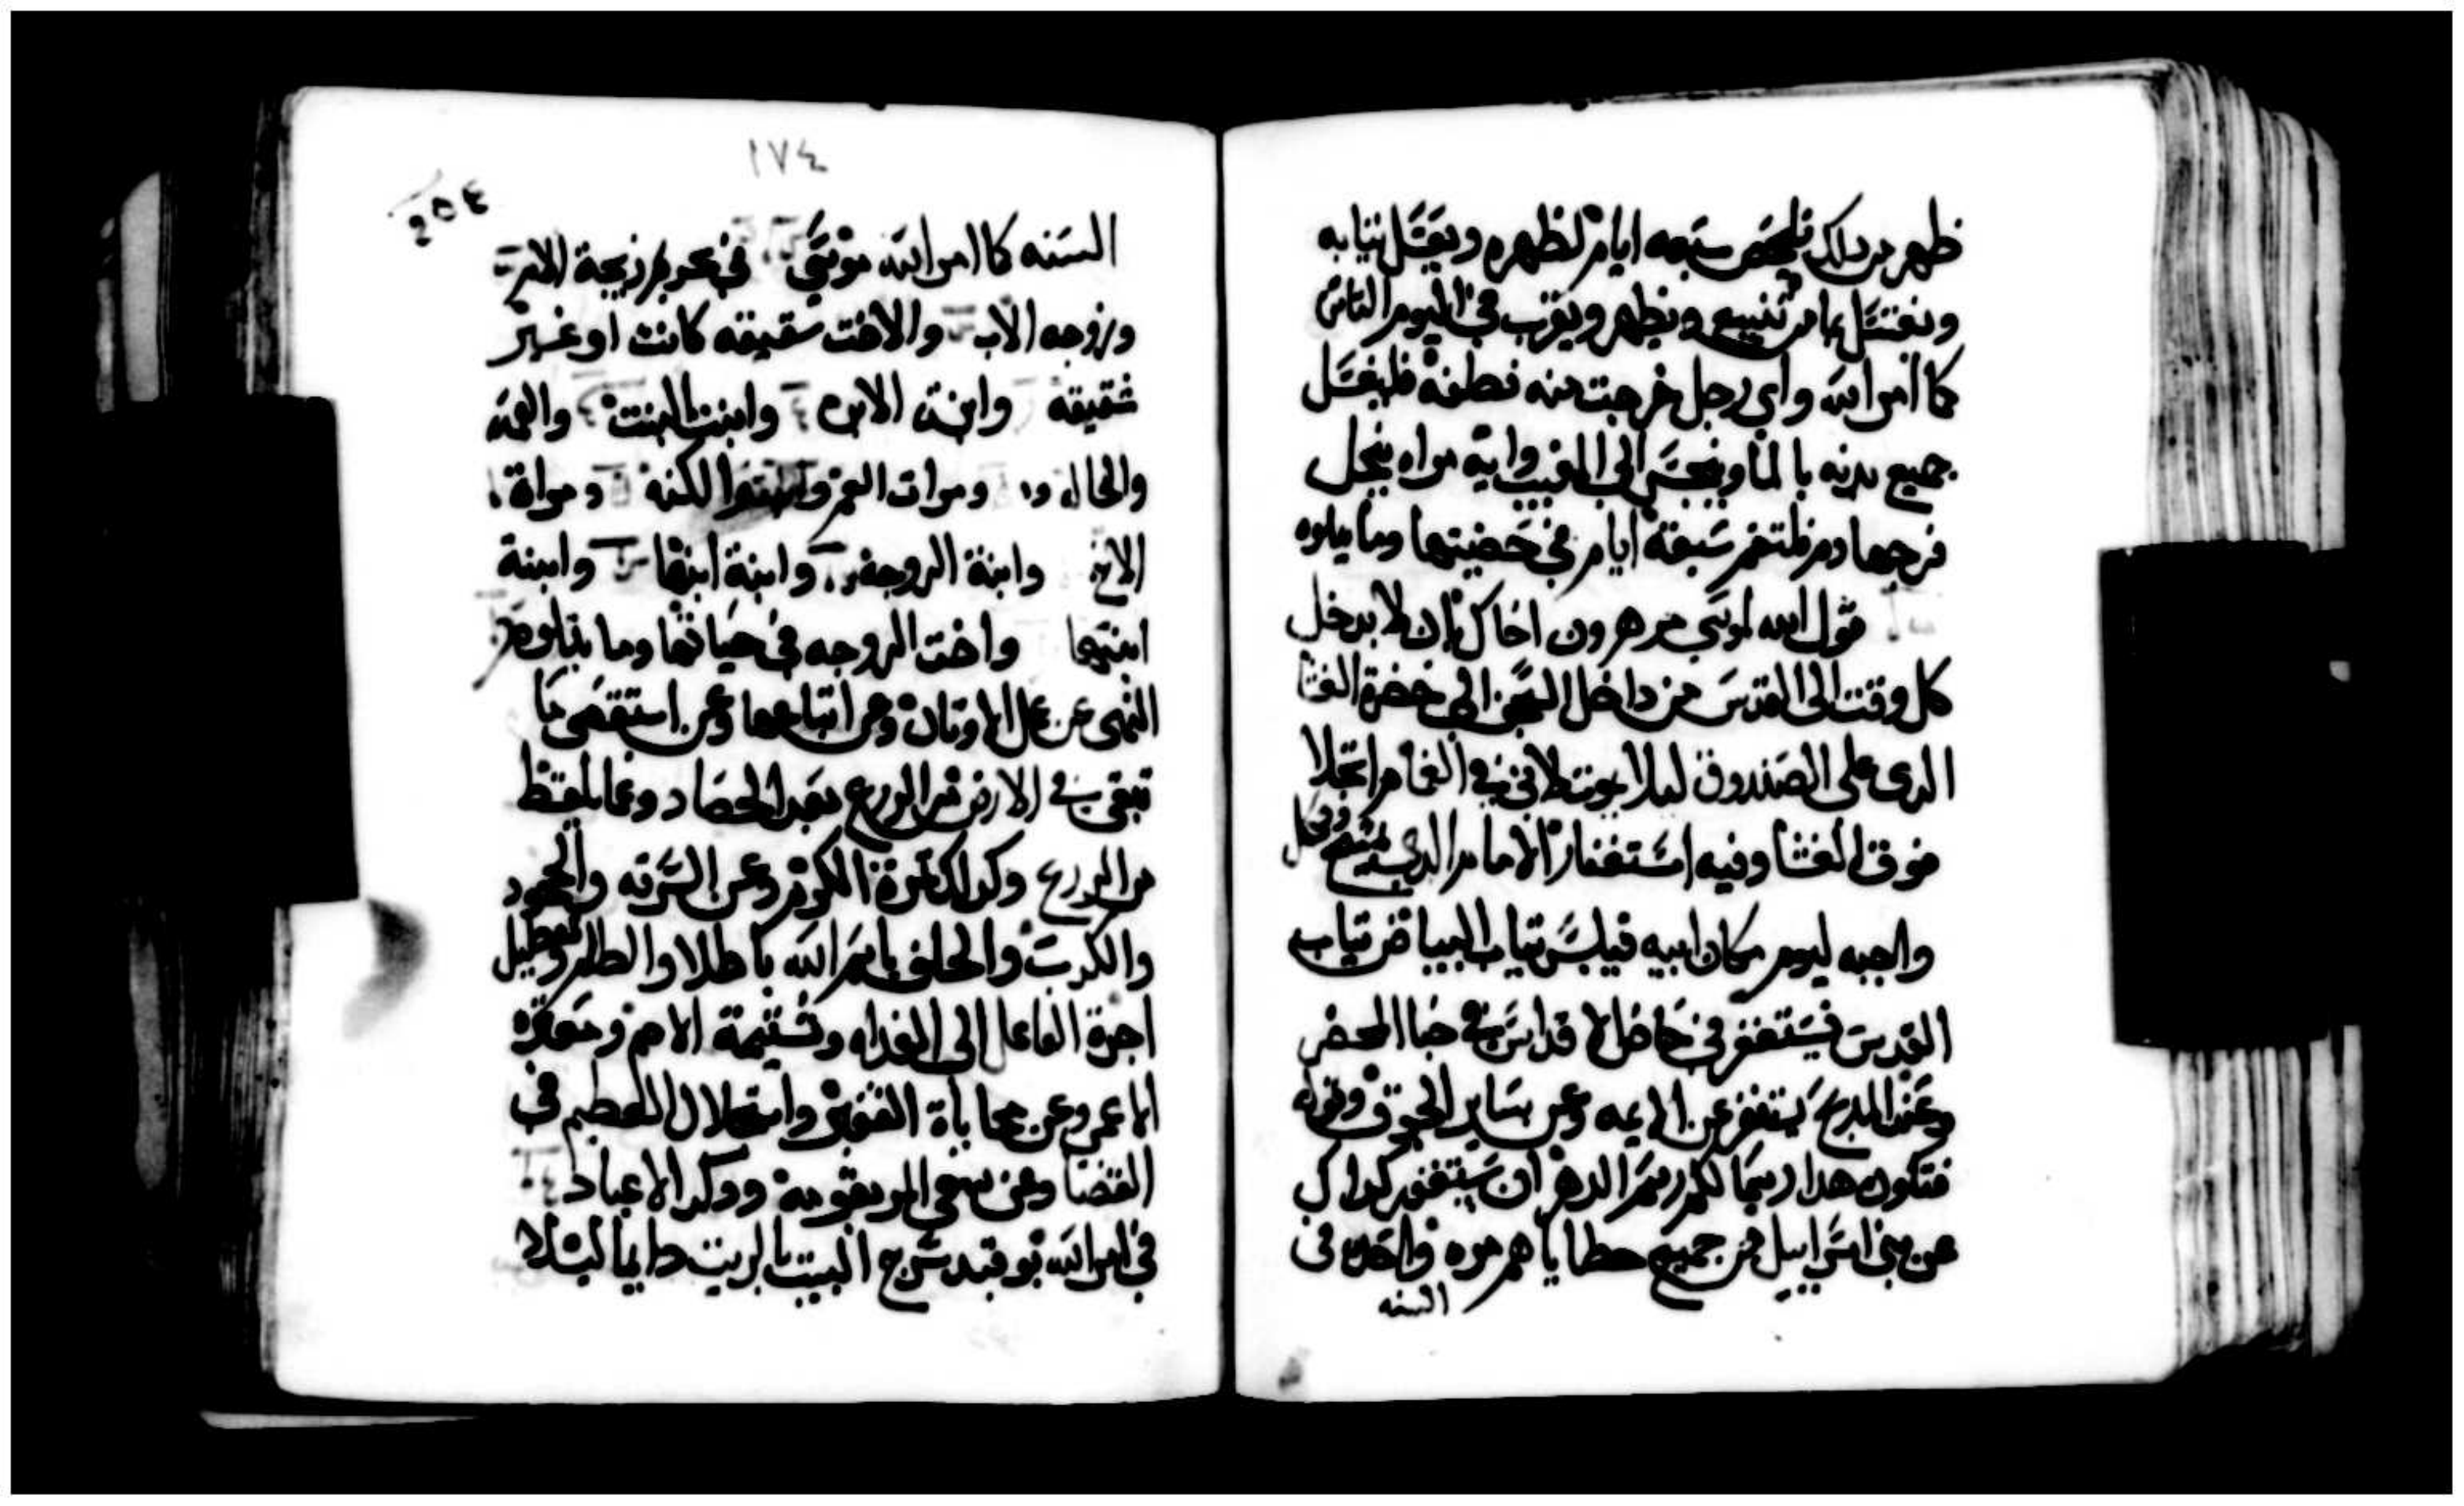 ظهر من داك فليحص سبعه ايام لظهره ويغتسل بتيابه
ويغتسل بما من تنبيع ويطهر ويقرب في اليوم التامن
كما امر الله واي رجل خرجت منه نطفة فليغسل
جميع بدنه بالما وينجس الى المغيب واية مراه ينحل
فرجها دم فلتقم سبعة ايام في حيضتها وما يتلوه
قول الله لموسى مر هرون اخاك بان لا يدخل
كل وقت الى القدس من داخل السجف الى حضرة الغشا
الدي على الصندوق ليلا يموت لاني في الغمام اتجلا
فوق الغشا وفيه استغفار الامام الدي يمسح وتكمل
واجبه ليوم مكان ابيه فيلبس تياب البياض تياب
القدس فيستغفر في خاص الاقداس في خبا المحضر
وعند المدبح يستغفر عن الايمه وعن ساير الجوق وقوله
فتكون هدا رسما لكم رسم الدهر ان يستغفر كداك
عن بني اسراييل من جميع خطاياهم مره واحده في
السنه
١٧٤
٢٥٤
السنه كما امر الله موسى في تحريم زيجة الام
وزوجه الاب والاخت شقيقه كانت او غير
شقيقه وابنة الابن وابنت البنت والعمه
والخاله ومرات العم والكنه ومراة
الاخ وابنة الزوجه وابنة ابنها وابنة
ابنتها واخت الزوجه في حياتها وما يتلوه
النهى عن عمل الاوتان وعن اتباعها وعن استقصى ما
تبقى في الارض من الزرع بعد الحصاد وعما يلتقط
من الزرع وكدلك تمرة الكرم وعن السرقه والجحود
والكدب والحلف باسم الله باطلا والظلم وتعطيل
اجرة الفاعل الى الغداه وشتيمة الاصم ومعترة
الاعمى وعن محاباة الفقير واستجلال العظيم في
القضا وعن سعي المر بقومه ودكر الاعياد
في امر الله توقيد سرج البيت بالزيت دايما ليلا